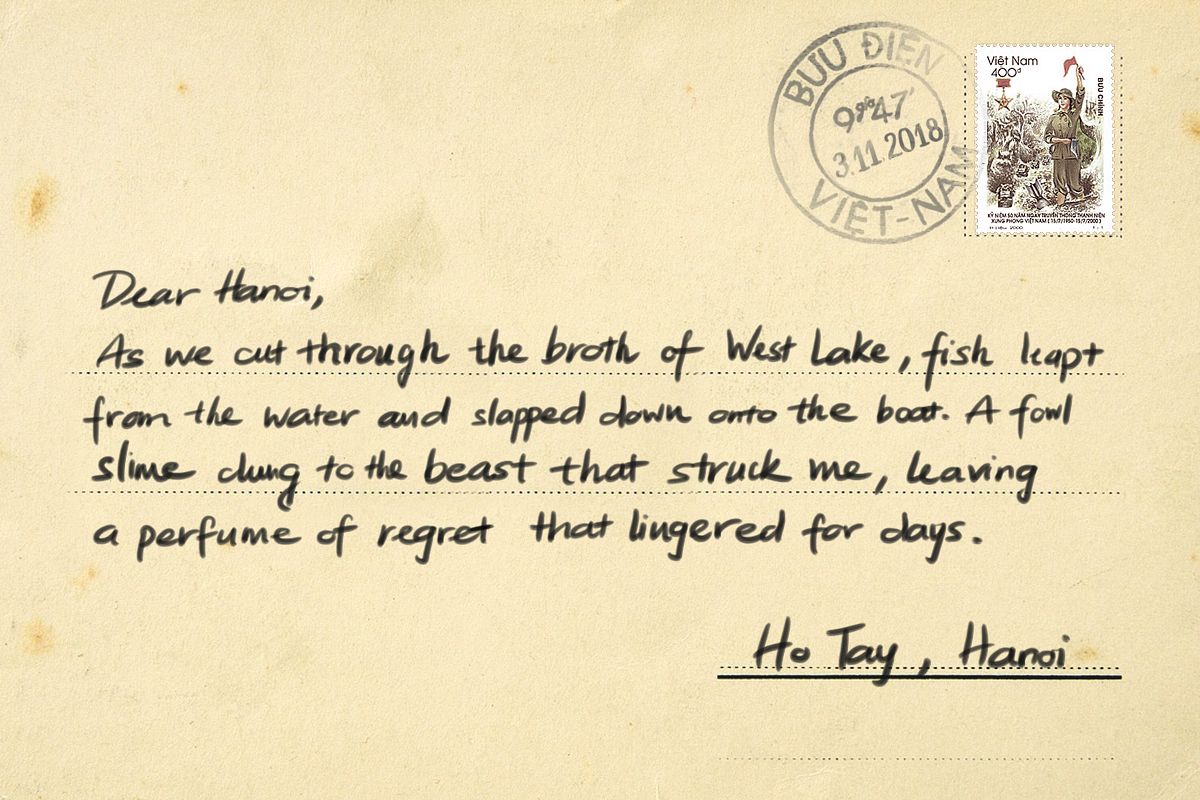 BƯU ĐIỆN
9giờ47'
3.11.2018
VIỆT-NAM
Việt Nam
400đ
BƯU CHÍNH
KỶ NIỆM 50 NĂM NGÀY TRUYỀN THỐNG THANH NIÊN
XUNG PHONG VIỆT NAM (15/7/1950-15/7/2000)
2000
1 - 1
Dear Hanoi,
As we cut through the broth of West Lake, fish leapt
from the water and slapped down onto the boat. A fowl
slime clung to the beast that struck me, leaving
a perfume of regret that lingered for days.
Ho Tay, Hanoi